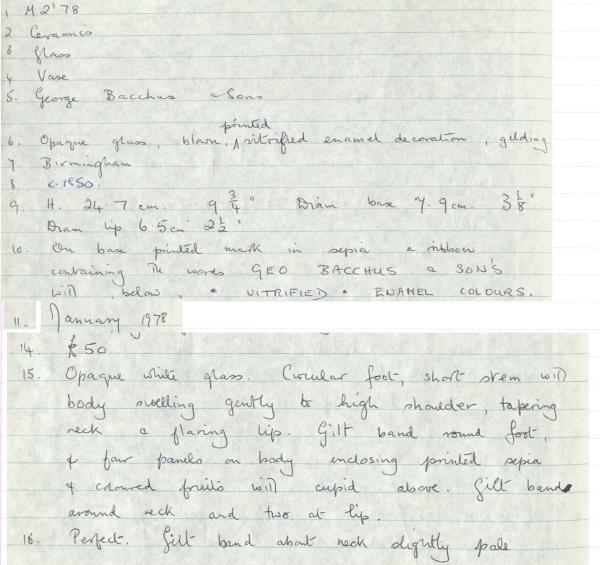 1 M 2'78
2 Ceramics
3 Glass
4 Vase
5. George Bacchus & Sons
printed
6. Opaque glass, blown, vitrified enamel decoration, gilding
7 Birmingham
8 c.1850.
9. H. 24.7 cm. 9 3/4" Diam base 7.9cm. 3 1/8"
Diam lip 6.5cm 2 1/2"
10. On base printed mark in sepia a ribbon
containing the words GEO. BACCHUS & SON'S
with below, • VITRIFIED • ENAMEL COLOURS.
11. January 1978
14. £50
15. Opaque white glass. Circular foot, short stem with
body swelling gently to high shoulder, tapering
neck & flaring lip. Gilt band round foot,
& four panels on body enclosing printed sepia
& coloured fruits with cupid above. Gilt band
around neck and two at lip.
16. Perfect. Gilt band about neck slightly pale